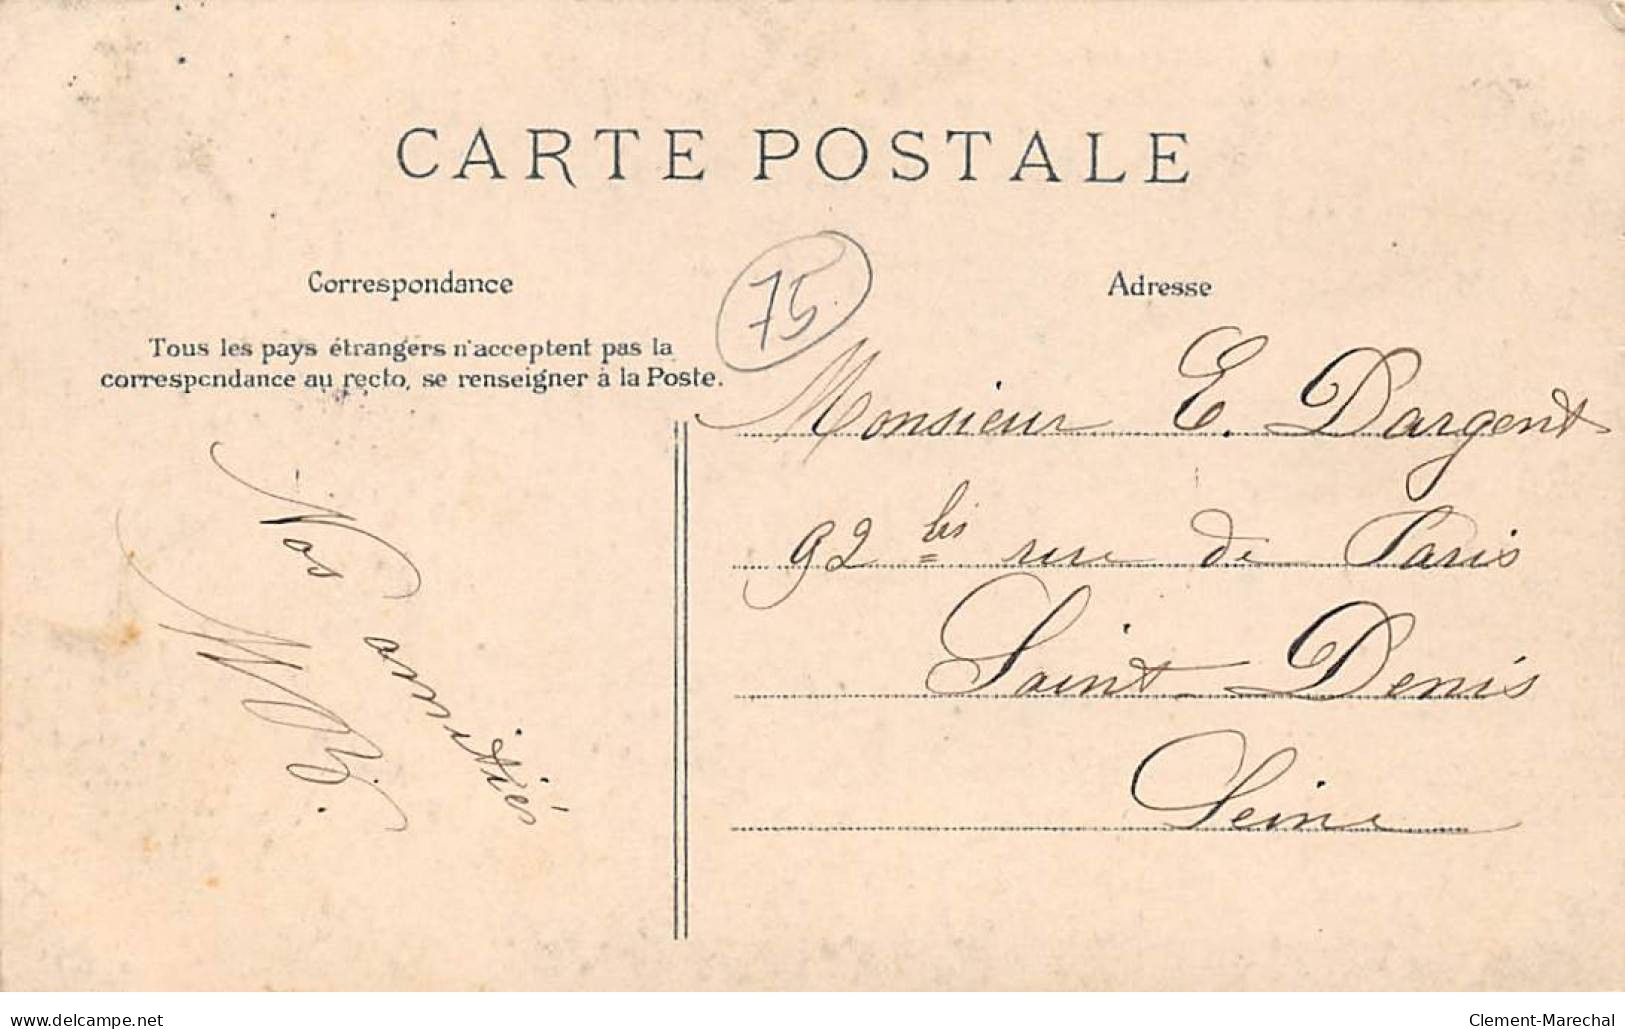 CARTE POSTALE
Correspondance
Tous les pays étrangers n'acceptent pas la
correspondance au recto, se renseigner à la Poste.
Nos amitiés
75
Adresse
Monsieur E. Dargent
92 bis rue de Paris
Saint-Denis
Seine
delcampe.net
Clement-Marechal